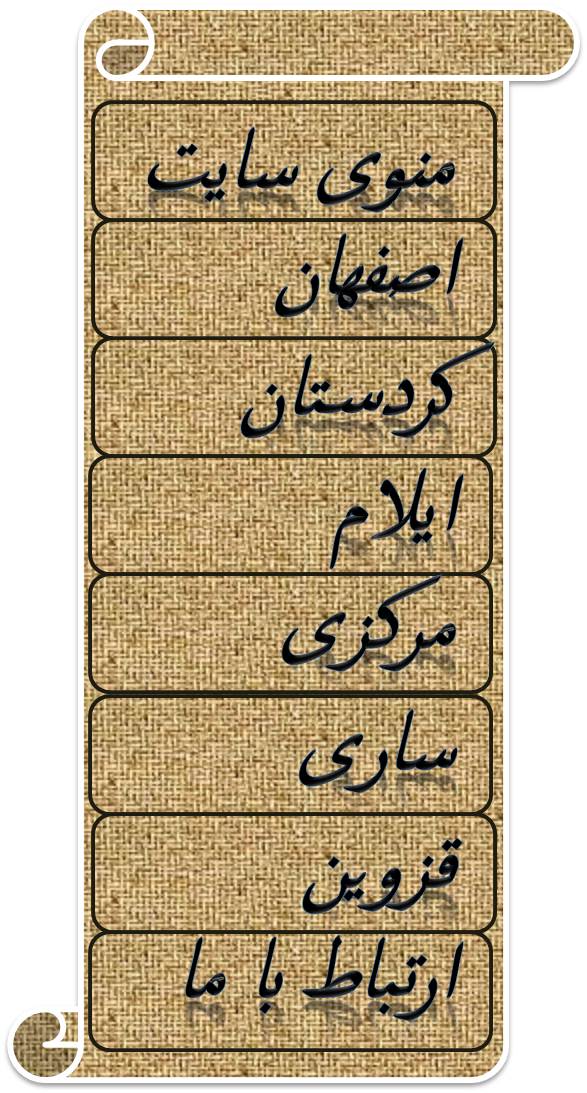 منوی سایت
اصفهان
کردستان
ایلام
مرکزی
ساری
قزوین
ارتباط با ما